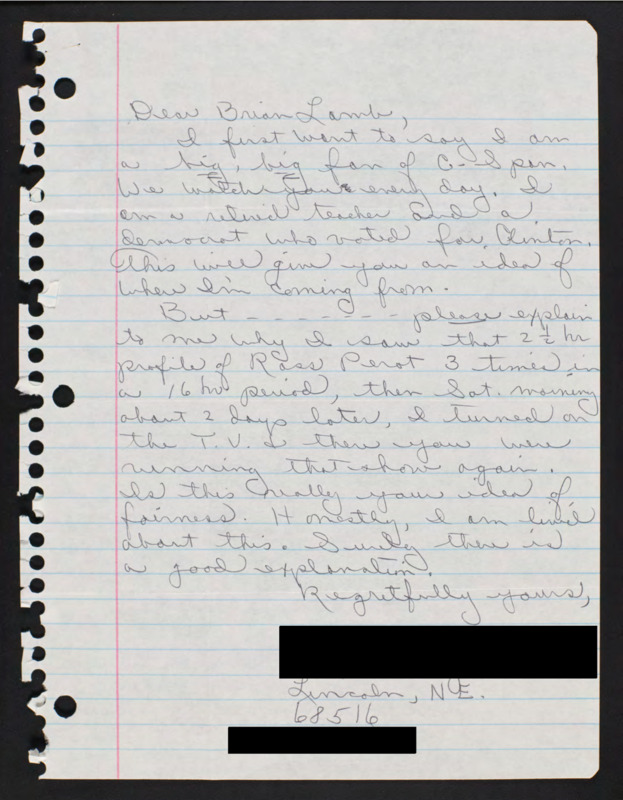 Dear Brian Lamb,
I first want to say I am
a big, big fan of C--Span.
We watch you every day. I
am a retired teacher and a
democrat who voted for Clinton.
This will give you an idea of
where I'm coming from.
But - - - - - - - - - please explain
to me why I saw that 2 1/2 hr
profile of Ross Perot 3 times in
a 16 hr period, then Sat. morning
about 2 days later, I turned on
the T.V. & there you were
running that show again.
Is this really your idea of
fairness. Honestly, I am livid
about this. Surely there is
a good explanation.
Regretfully yours,
Lincoln, NE.
68516